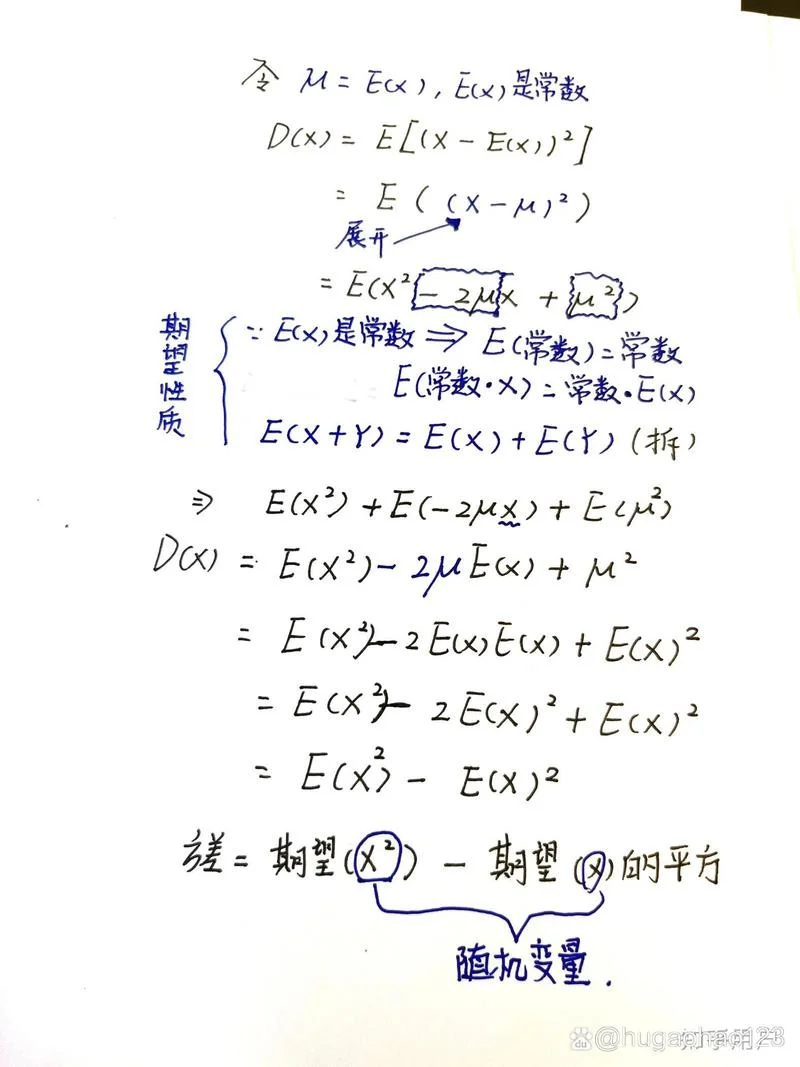 令 μ = E(x), E(x)是常数
D(x) = E[(x - E(x))²]
= E((x-μ)²)
展开
= E(x² - 2μx + μ²)
期望性质
∵ E(x)是常数 ⇒ E(常数)=常数
E(常数·X)=常数·E(x)
E(X+Y) = E(X)+E(Y) (拆)
⇒ E(X²)+E(-2μx)+E(μ²)
D(x) = E(X²)-2μE(x)+μ²
= E(X²)-2E(x)E(x)+E(x)²
= E(X²)-2E(x)²+E(x)²
= E(X²)-E(x)²
方差=期望(X²)-期望(x)的平方
随机变量.
@hugaohao123